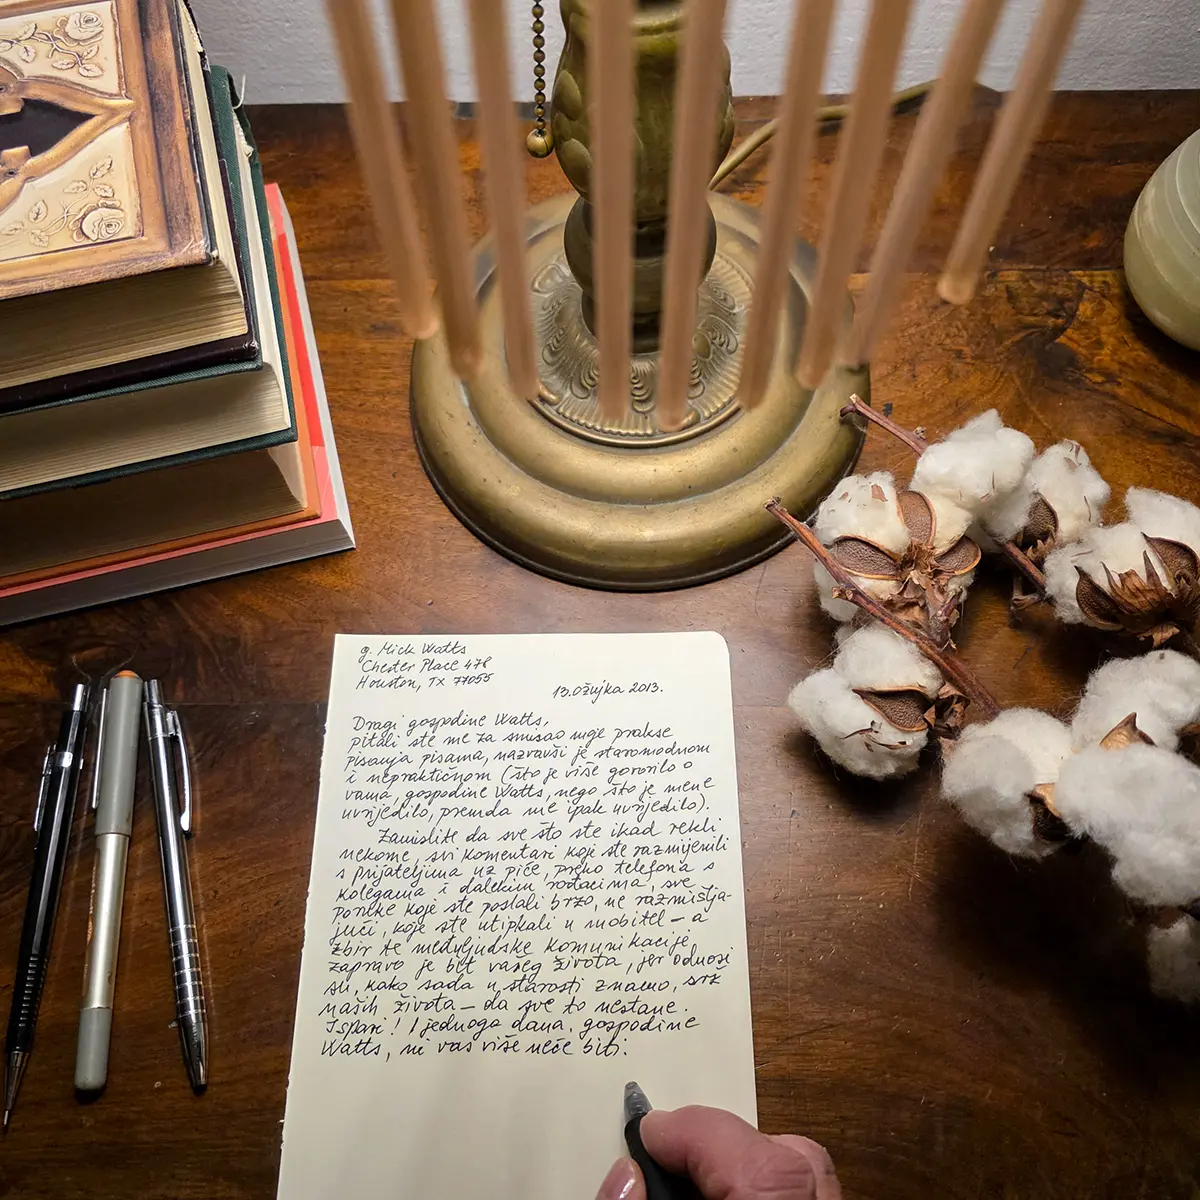 g. Mick Watts
Chester Place 478
Houston, TX 77055
13. ožujka 2013.
Dragi gospodine Watts,
pitali ste me za smisao moje prakse
pisanja pisama, nazvavši je staromodnom
i nepraktičnom (što je više govorilo o
vama, gospodine Watts, nego što je mene
uvrijedilo, premda me ipak uvrijedilo).
Zamislite da sve što ste ikad rekli
nekome, svi komentari koje ste razmijenili
s prijateljima uz piće, preko telefona s
kolegama i dalekim rođacima, sve
poruke koje ste poslali brzo, ne razmišlja-
jući, koje ste utipkali u mobitel – a
zbir te međuljudske komunikacije
zapravo je bit vašeg života, jer odnosi
su, kako sada u starosti znamo, srž
naših života – da sve to nestane.
Ispari! I jednoga dana, gospodine
Watts, ni vas više neće biti.